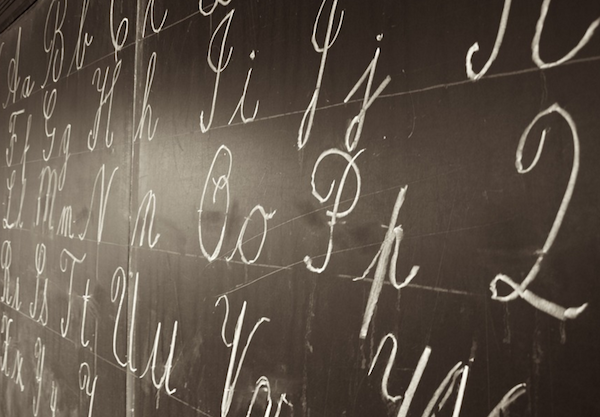 A a B b C c
F f G g H h I i J j K
L l M m N n O o P p Q
R r S s T t U u V v W
X x Y y